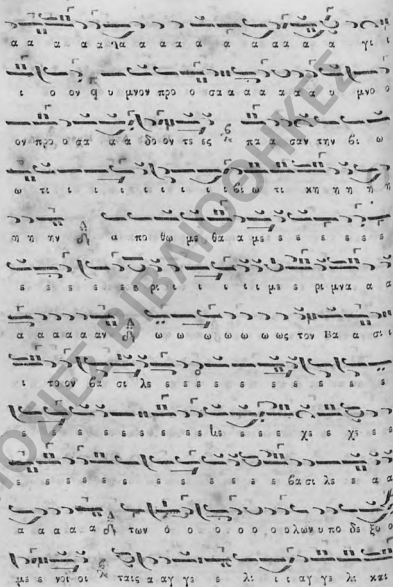 α α α α α γα α α α α α α α α α α γι ι
ι ο ον υ μνον προ ο σα α α α α α α υ μνο ο
ον προ ο σα α α δο ον τε ες πα α σαν την βι ω
ω τι ι ι ι ι ι ι ι βι ω τι κη η η η η
η η ην α πο θω με θα α με ε ε ε ε ε ε
ε ε ε ε ε ε ε ρι ι ι ι ι ι με ε ρι μνα α α
α α α α α αν ω ω ω ω ω ω ως τον Βα α σι ι
ι το ον βα σι λε ε ε ε ε ε ε ε ε ε ε ε ε
ε ε ε ε ε ε ε ε ε ε ε ε ε χε ε χε ε
ε ε ε ε ε ε ε ε ε ε ε ε ε βα σι λε ε α α
α α α α α των ο ο ο ο ο ο ο λων υ πο δε ξο ο
με ε νοι οι ταις α αγ γε ε λι ι αγ γε λι και
ΒΙΒΛΙΟΘΗΚΕΣ